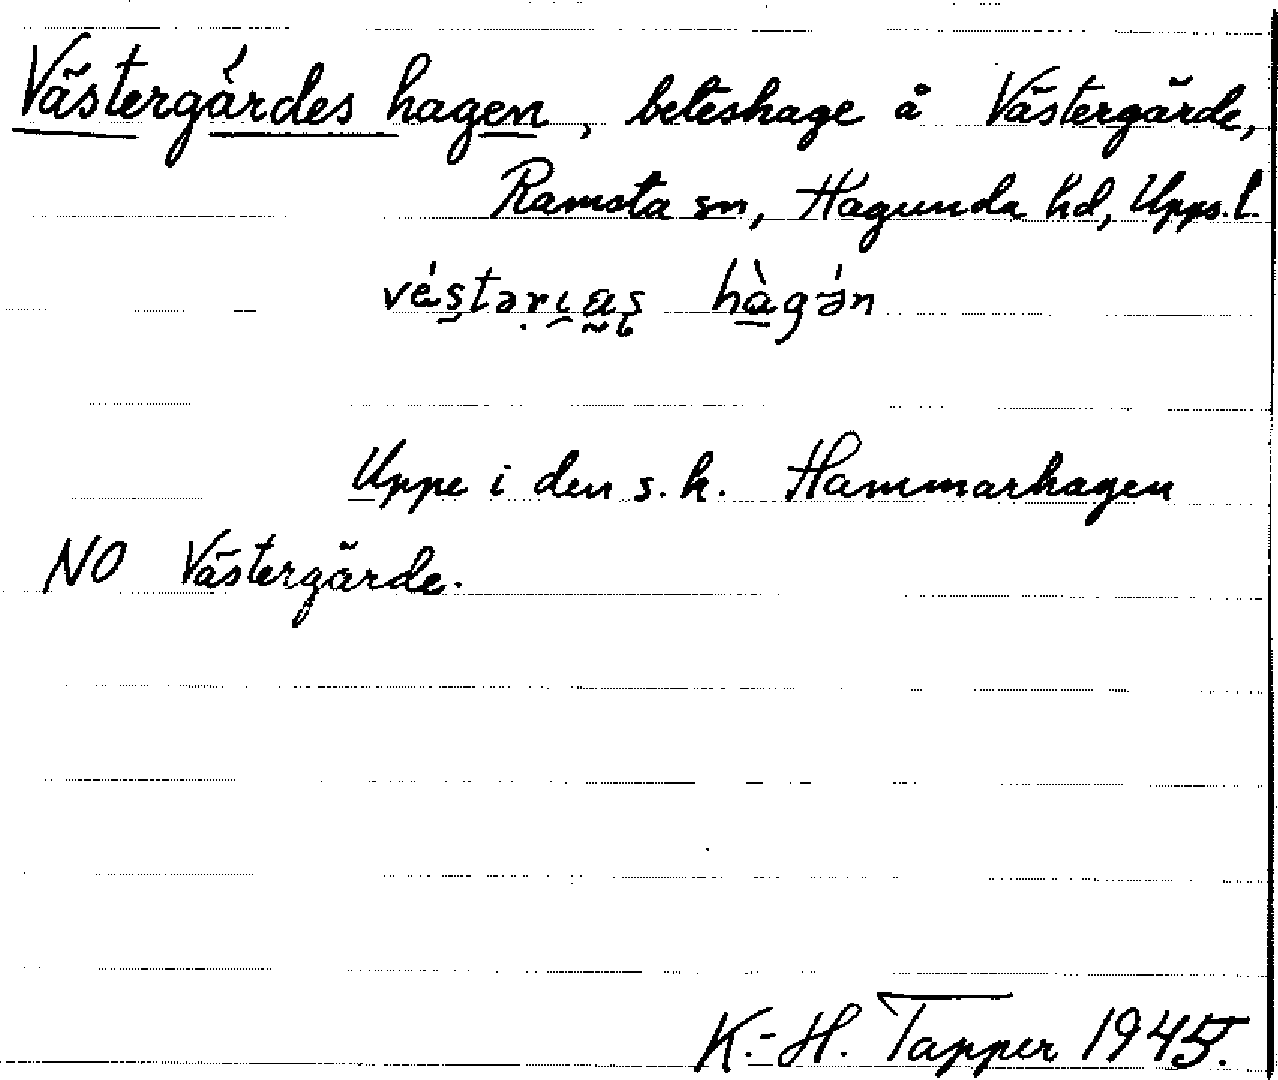 Västergärdes hagen, beteshage å Västergärde,
Ramsta sn, Hagunda hd, Upps. l.
hàgən
Uppe i den s. k. Hammarhagen
NO Västergärde.
K.-H. Tapper 1945.